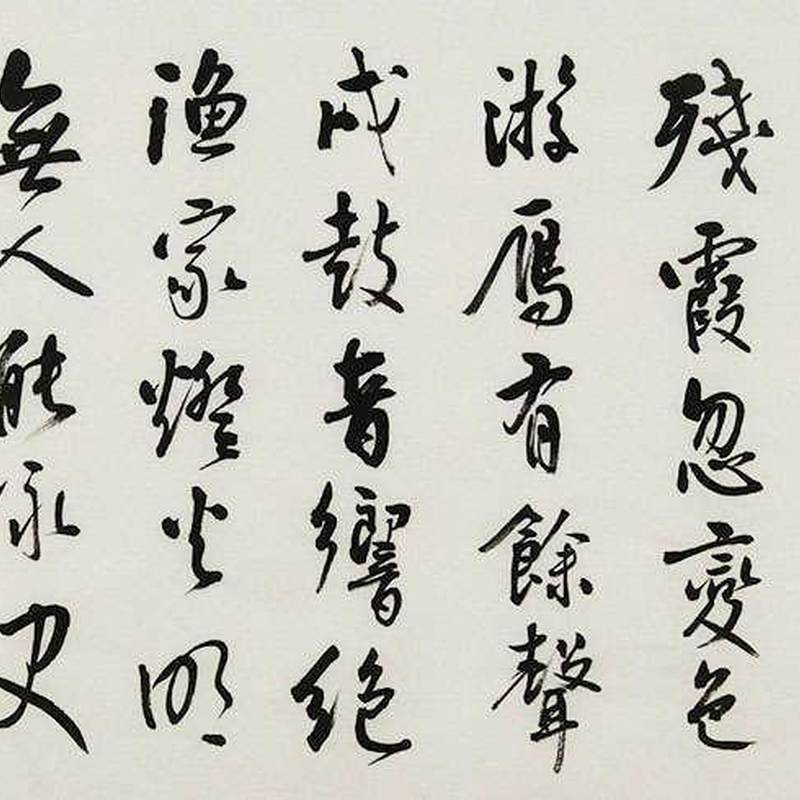 殘霞忽變色
游鴈有餘聲
戍鼓音響絕
漁家燈火明
無人能詠史